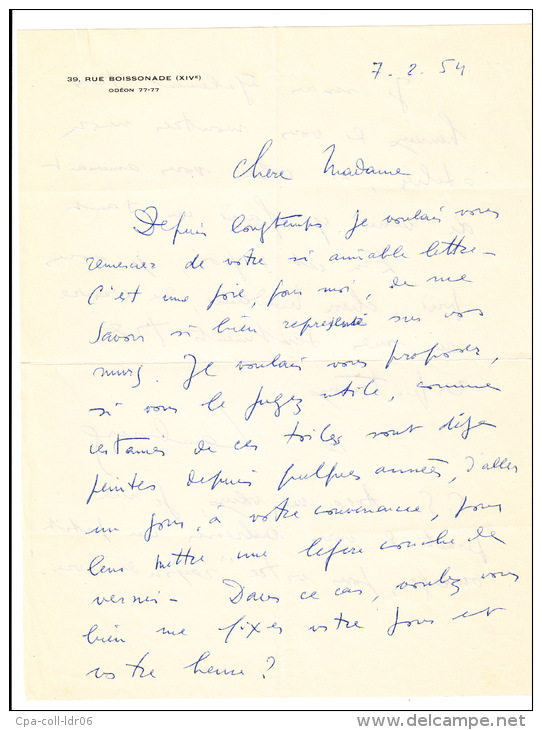 39, RUE BOISSONADE (XIVᵉ)
ODÉON 77-77
7. 2. 54
Chère Madame
Depuis longtemps je voulais vous
remercier de votre si aimable lettre -
C'est une joie, pour moi, de me
savoir si bien représenté sur vos
murs. Je voulais vous proposer,
si vous le jugez utile, comme
certaines de ces toiles sont déjà
peintes depuis quelques années, d'aller
un jour, à votre convenance, pour
leur mettre une légère couche de
vernis - Dans ce cas, voulez vous
bien me fixer votre jour et
votre heure ?
Cpa-coll-ldr06
www.delcampe.net